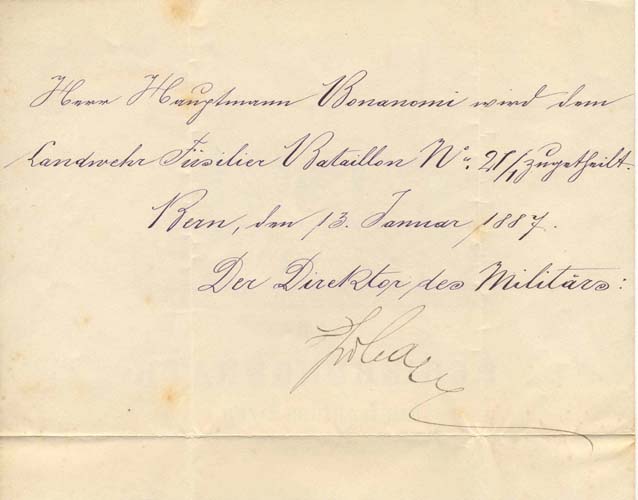 Herr Hauptmann Bonanomi wird dem
Landwehr Füsilier Bataillon No. 21/1 zugetheilt.
Bern, den 13. Januar 1887.
Der Direktor des Militärs: